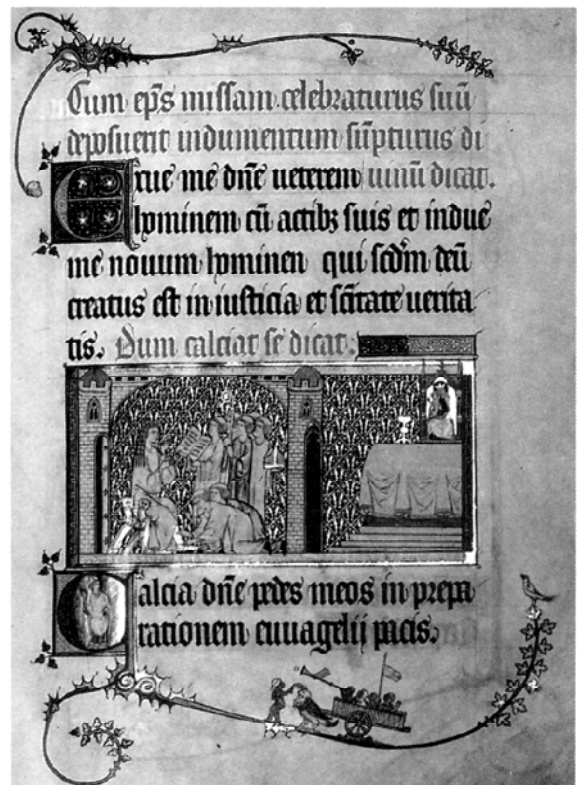 Cum ep̄s missam celebraturus suū
deposuerit indumentum sūpturus di
Erue me dn̄e ueterem uinū dicat.
hominem cū actibꝫ suis et indue
me nouum hominen qui scd̄m deū
creatus est in iusticia et sc̄itate uerita
tis. Dum calciat se dicat.
Calcia dn̄e pedes meos in prepa
rationem euuāgelij pacis.